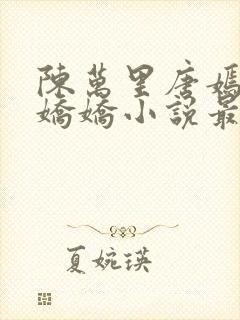 陳萬里唐嫣
嬌嬌小說最
夏婉瑛